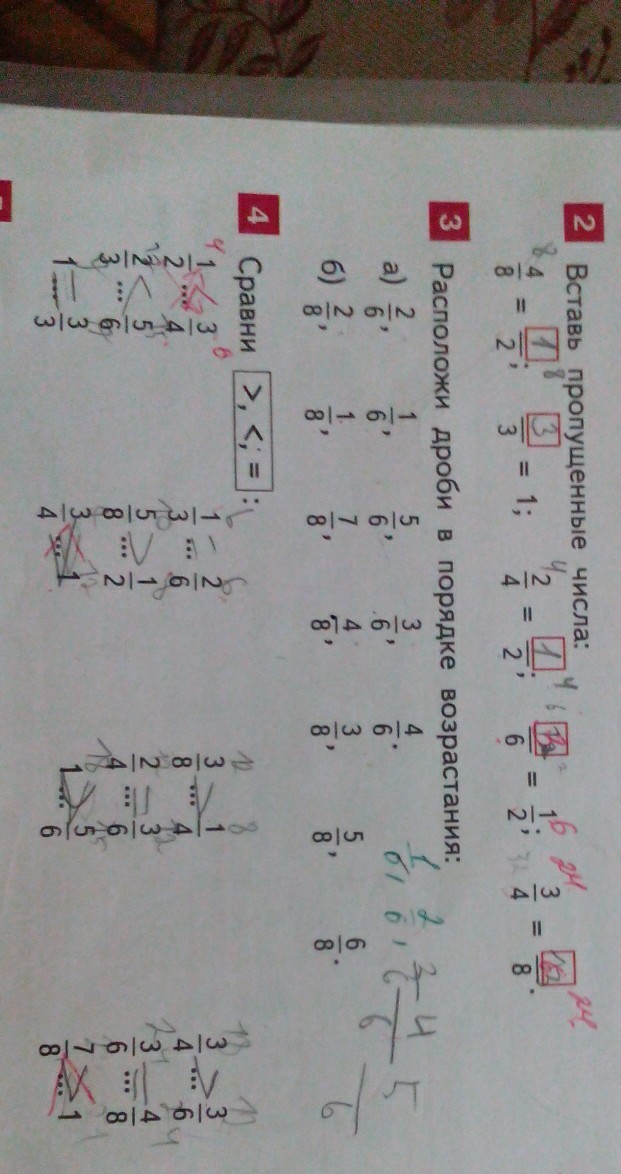 2 Вставь пропущенные числа:
4/8 = 1/2; 3/3 = 1; 2/4 = 1/2; /6 = 1/2; 3/4 = /8.
3 Расположи дроби в порядке возрастания:
а) 2/6, 1/6, 5/6, 3/6, 4/6.
1/6, 2/6, 3/6 4/6 5/6
б) 2/8, 1/8, 7/8, 4/8, 3/8, 5/8, 6/8.
4 Сравни >, <, = :
1/2 ... 3/4 1/3 ... 2/6 3/8 ... 1/4 3/4 ... 3/6
2/3 < 5/6 5/8 > 1/2 2/4 = 3/6 3/6 = 4/8
1 = 3/3 3/4 ... 1 1 > 5/6 7/8 ... 1